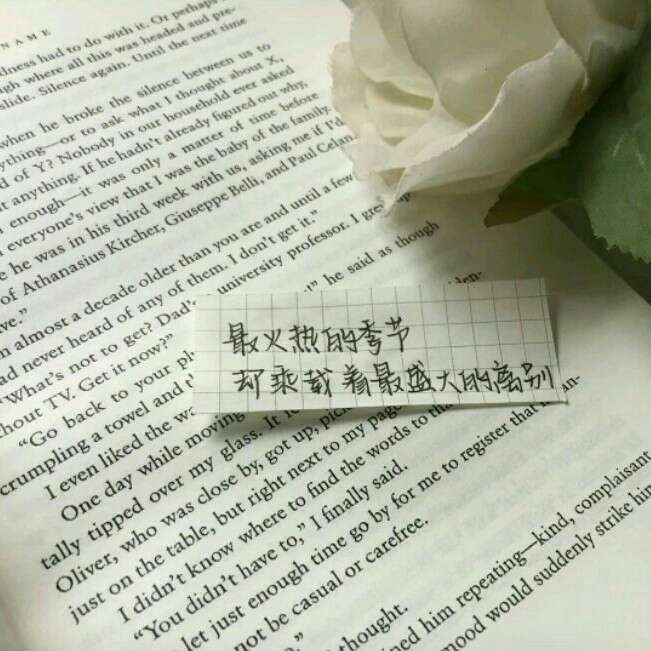 NAME
dness had to do with it. Or perhaps
ugh where all this was headed and pre-
slide. Silence again. Until the next time
when he broke the silence between us to
ything—or to ask what I thought about X,
d of Y? Nobody in our household ever asked
t anything. If he hadn't already figured out why,
enough—it was only a matter of time before
everyone's view that I was the baby of the family.
e he was in his third week with us, asking me if I'd
of Athanasius Kircher, Giuseppe Belli, and Paul Celan
ve."
m almost a decade older than you are and until a few
ad never heard of any of them. I don't get it."
"What's not to get? Dad's university professor. I grew up
hout TV. Get it now?"
"Go back to your " he said as though
crumpling a towel and
I even liked the
最火热的季节
却乘载着最盛大的离别
One day while moving
tally tipped over my glass. It
Oliver, who was close by, got up,
just on the table, but right next to my
I didn't know where to find the words to
"You didn't have to," I finally said.
let just enough time go by for me to register that
not be casual or carefree.
thought.
ined him repeating—kind, complaisant
mood would suddenly strike him